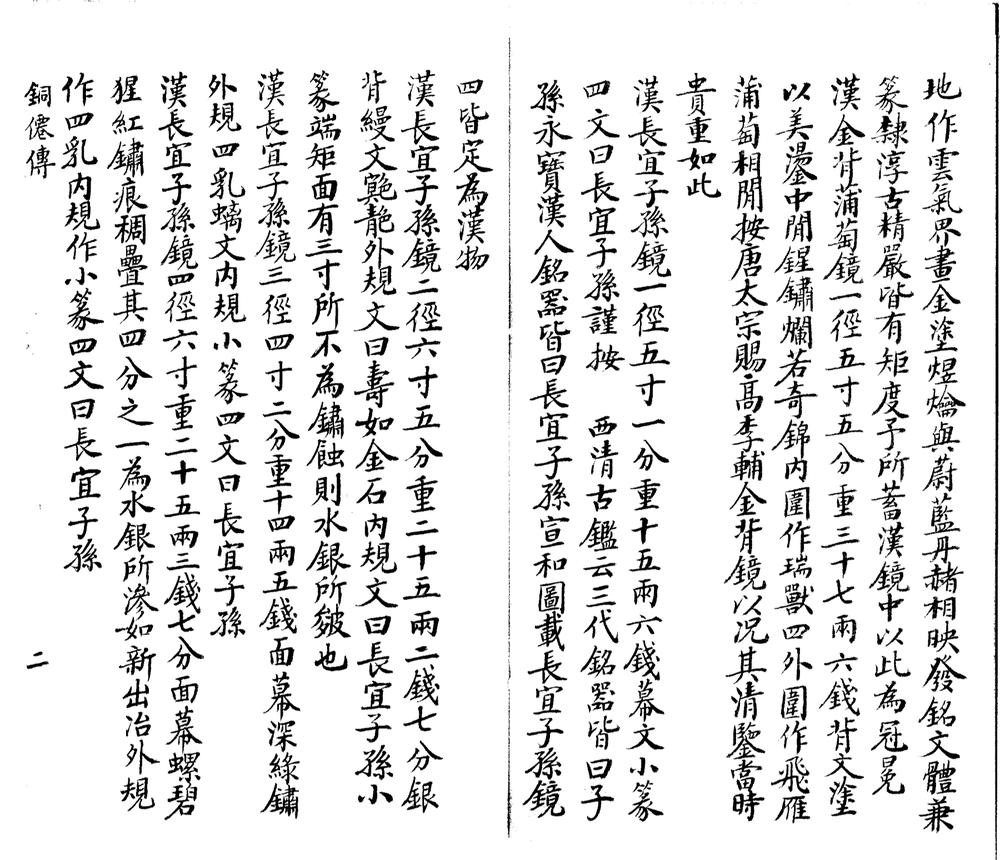 地作雲氣界畫金塗煜爚與蔚藍丹赭相映發銘文體兼
篆隸淳古精嚴皆有矩度予所蓄漢鏡中以此為冠冕
漢金背蒲萄鏡一徑五寸五分重三十七兩六錢背文塗
以美瀅中閒鍟鏽爛若奇錦内圍作瑞獸四外圍作飛雁
蒲萄相閒按唐太宗賜高季輔金背鏡以况其清鑒當時
貴重如此
漢長宜子孫鏡一徑五寸一分重十五兩六錢幕文小篆
四文曰長宜子孫謹按　西清古鑑云三代銘器皆曰子
孫永寶漢人銘器皆曰長宜子孫宣和圖載長宜子孫鏡
四皆定為漢物
漢長宜子孫鏡二徑六寸五分重二十五兩二錢七分銀
背縵文靘外規文曰壽如金石内規文曰長宜子孫小
篆端矩面有三寸所不為鏽蝕則水銀所皴也
漢長宜子孫鏡三徑四寸二分重十四兩五錢面幕深綠鏽
外規四乳螭文内規小篆四文曰長宜子孫
漢長宜子孫鏡四徑六寸重二十五兩三錢七分面幕螺碧
猩紅鏽痕稠疊其四分之一為水銀所滲如新出冶外規
作四乳内規作小篆四文曰長宜子孫
銅僊傳　二